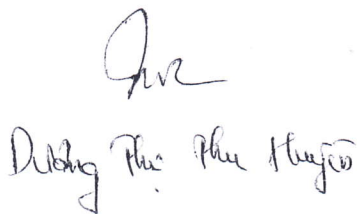 Dương Thị Thu Huyền